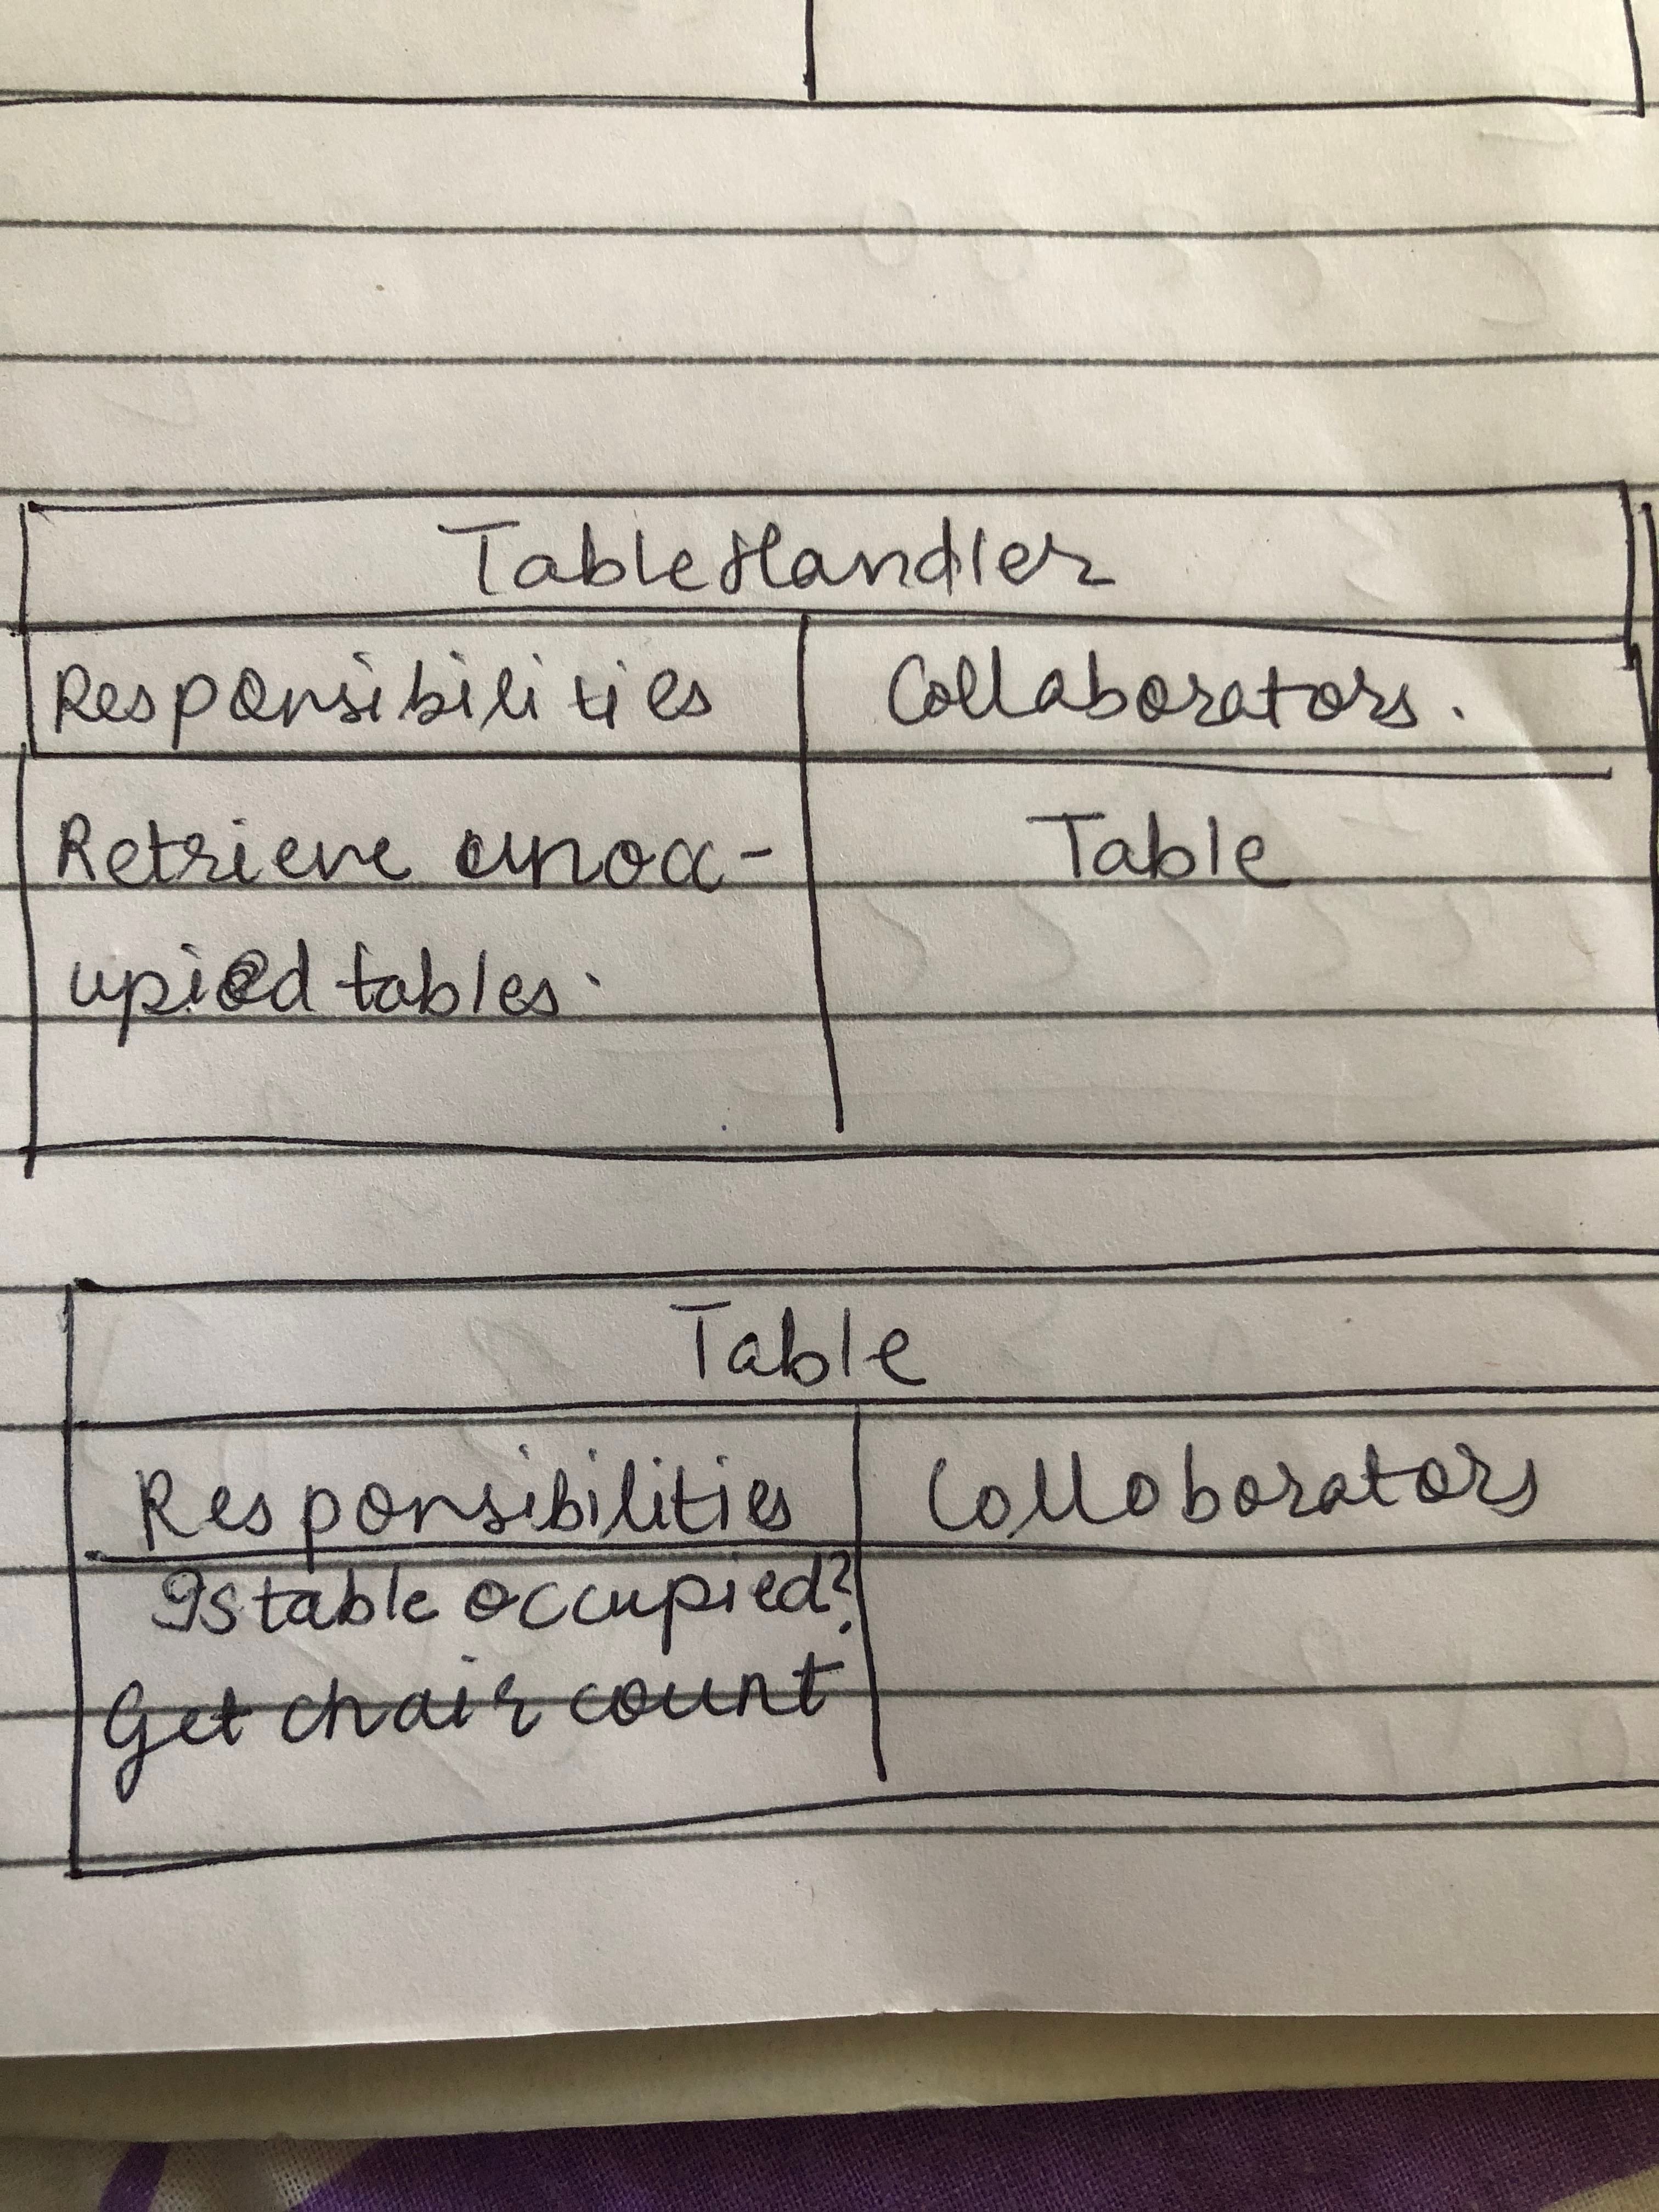 TableHandler
Responsibilities Collaborators.
Retrieve unocc- Table
upied tables.
Table
Responsibilities Colloborators
Is table occupied?
Get chair count